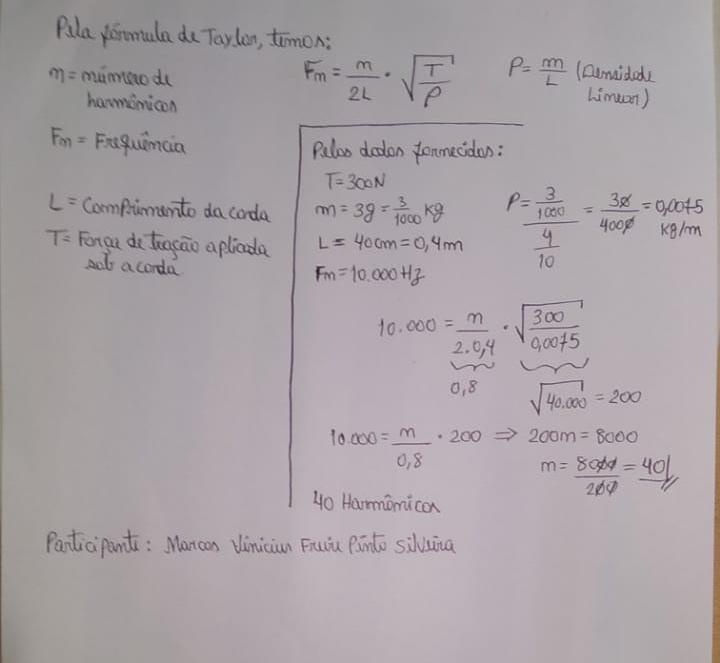 Pela fórmula de Taylor, temos:
n = número de
harmônicos
Fn = n/2L · √(T/ρ)
ρ = m/L (Densidade
Linear)
Fn = Frequência
L = Comprimento da corda
T = Força de tração aplicada
sob a corda
Pelos dados fornecidos:
T = 300N
m = 3g = 3/1000 kg
L = 40cm = 0,4m
Fn = 10.000 Hz
ρ = (3/1000)/(4/10) = 30/4000 = 0,0075
kg/m
10.000 = n/2.0,4 · √(300/0,0075)
0,8
√40.000 = 200
10.000 = n/0,8 · 200 ⇒ 200n = 8000
n = 8000/200 = 40
40 Harmônicos
Participante: Marcos Vinicius Pinto Silveira